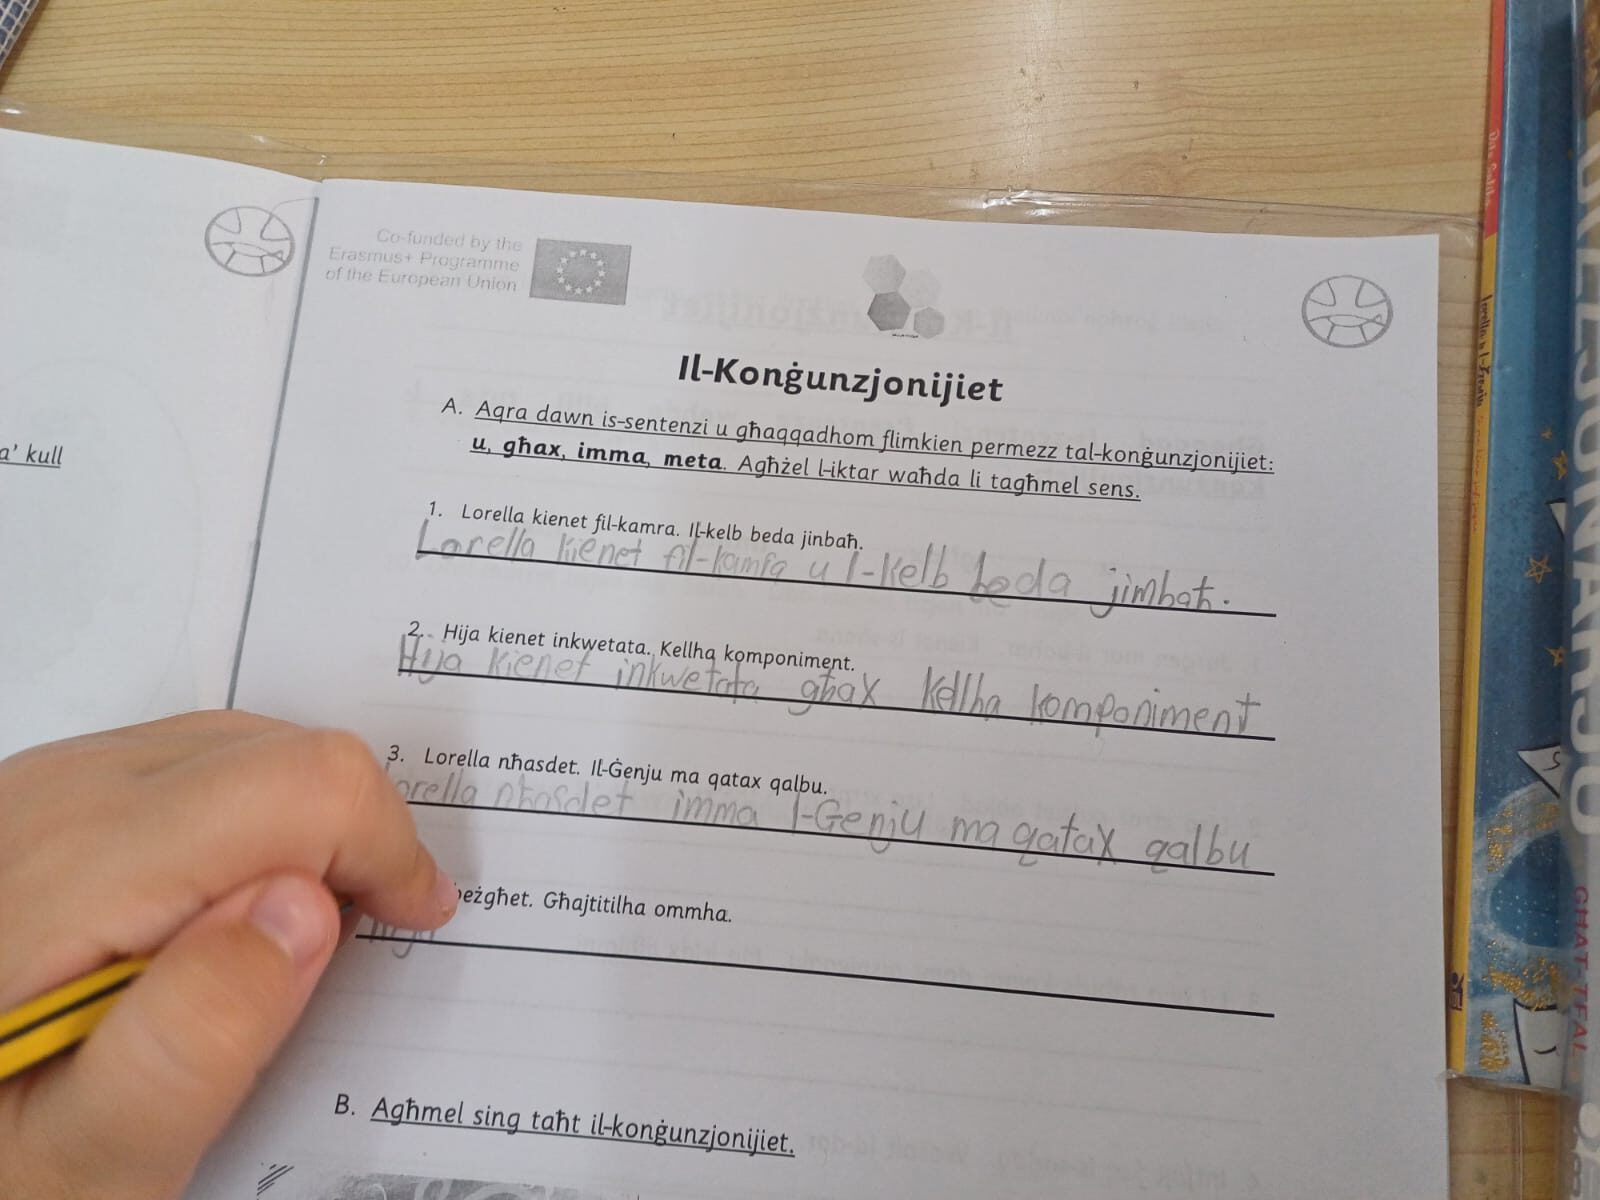 Co-funded by the
Erasmus+ Programme
of the European Union
Il-Konġunzjonijiet
A. Aqra dawn is-sentenzi u għaqqadhom flimkien permezz tal-konġunzjonijiet:
u, għax, imma, meta. Agħżel l-iktar waħda li tagħmel sens.
a' kull
1. Lorella kienet fil-kamra. Il-kelb beda jinbaħ.
Lorella kienet fil-kamra u l-kelb beda jimbaħ.
2. Hija kienet inkwetata. Kellha komponiment.
Hija kienet inkwetata għax kellha komponiment
3. Lorella nħasdet. Il-Ġenju ma qatax qalbu.
Lorella nħasdet imma l-Ġenju ma qatax qalbu
beżgħet. Għajtitilha ommha.
B. Agħmel sing taħt il-konġunzjonijiet.
GĦAT-TFAL